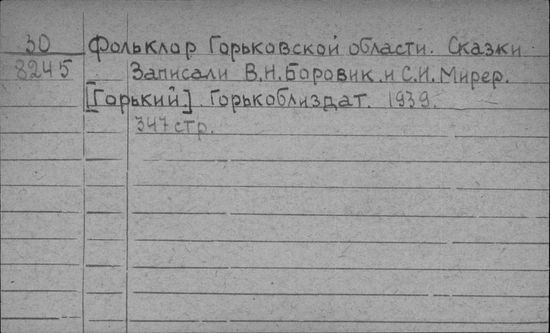 30 Фольклор Горьковской области. Сказки
8245 Записали В.Н.Боровик и С.И.Мирер.
[Горький]. Горькоблиздат. 1939.
347 стр.